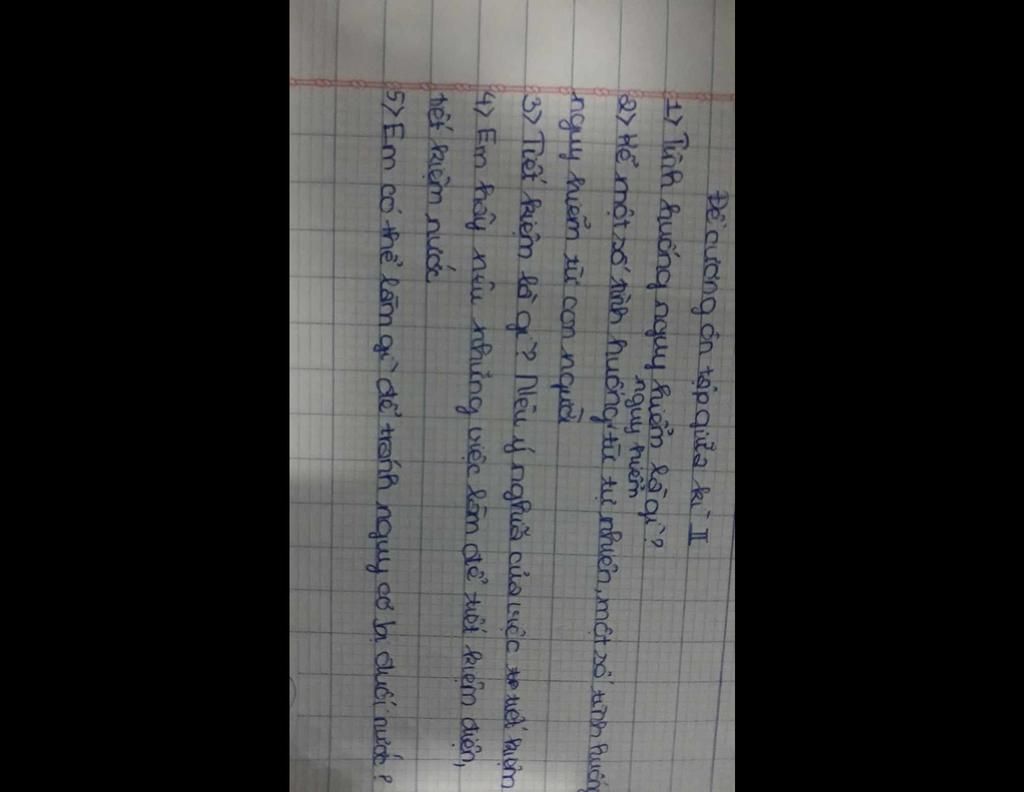 Đề cương ôn tập giữa kì II
1> Tình huống nguy hiểm là gì?
nguy hiểm
2> Kể một số tình huống từ tự nhiên, một số tình huống
nguy hiểm từ con người
3> Tiết kiệm là gì? Nêu ý nghĩa của việc tiết kiệm
4> Em hãy nêu những việc làm để tiết kiệm điện,
tiết kiệm nước
5> Em có thể làm gì để tránh nguy cơ bị đuối nước?